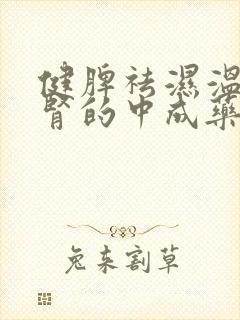 健脾祛湿温
肾的中成药
兔来割草